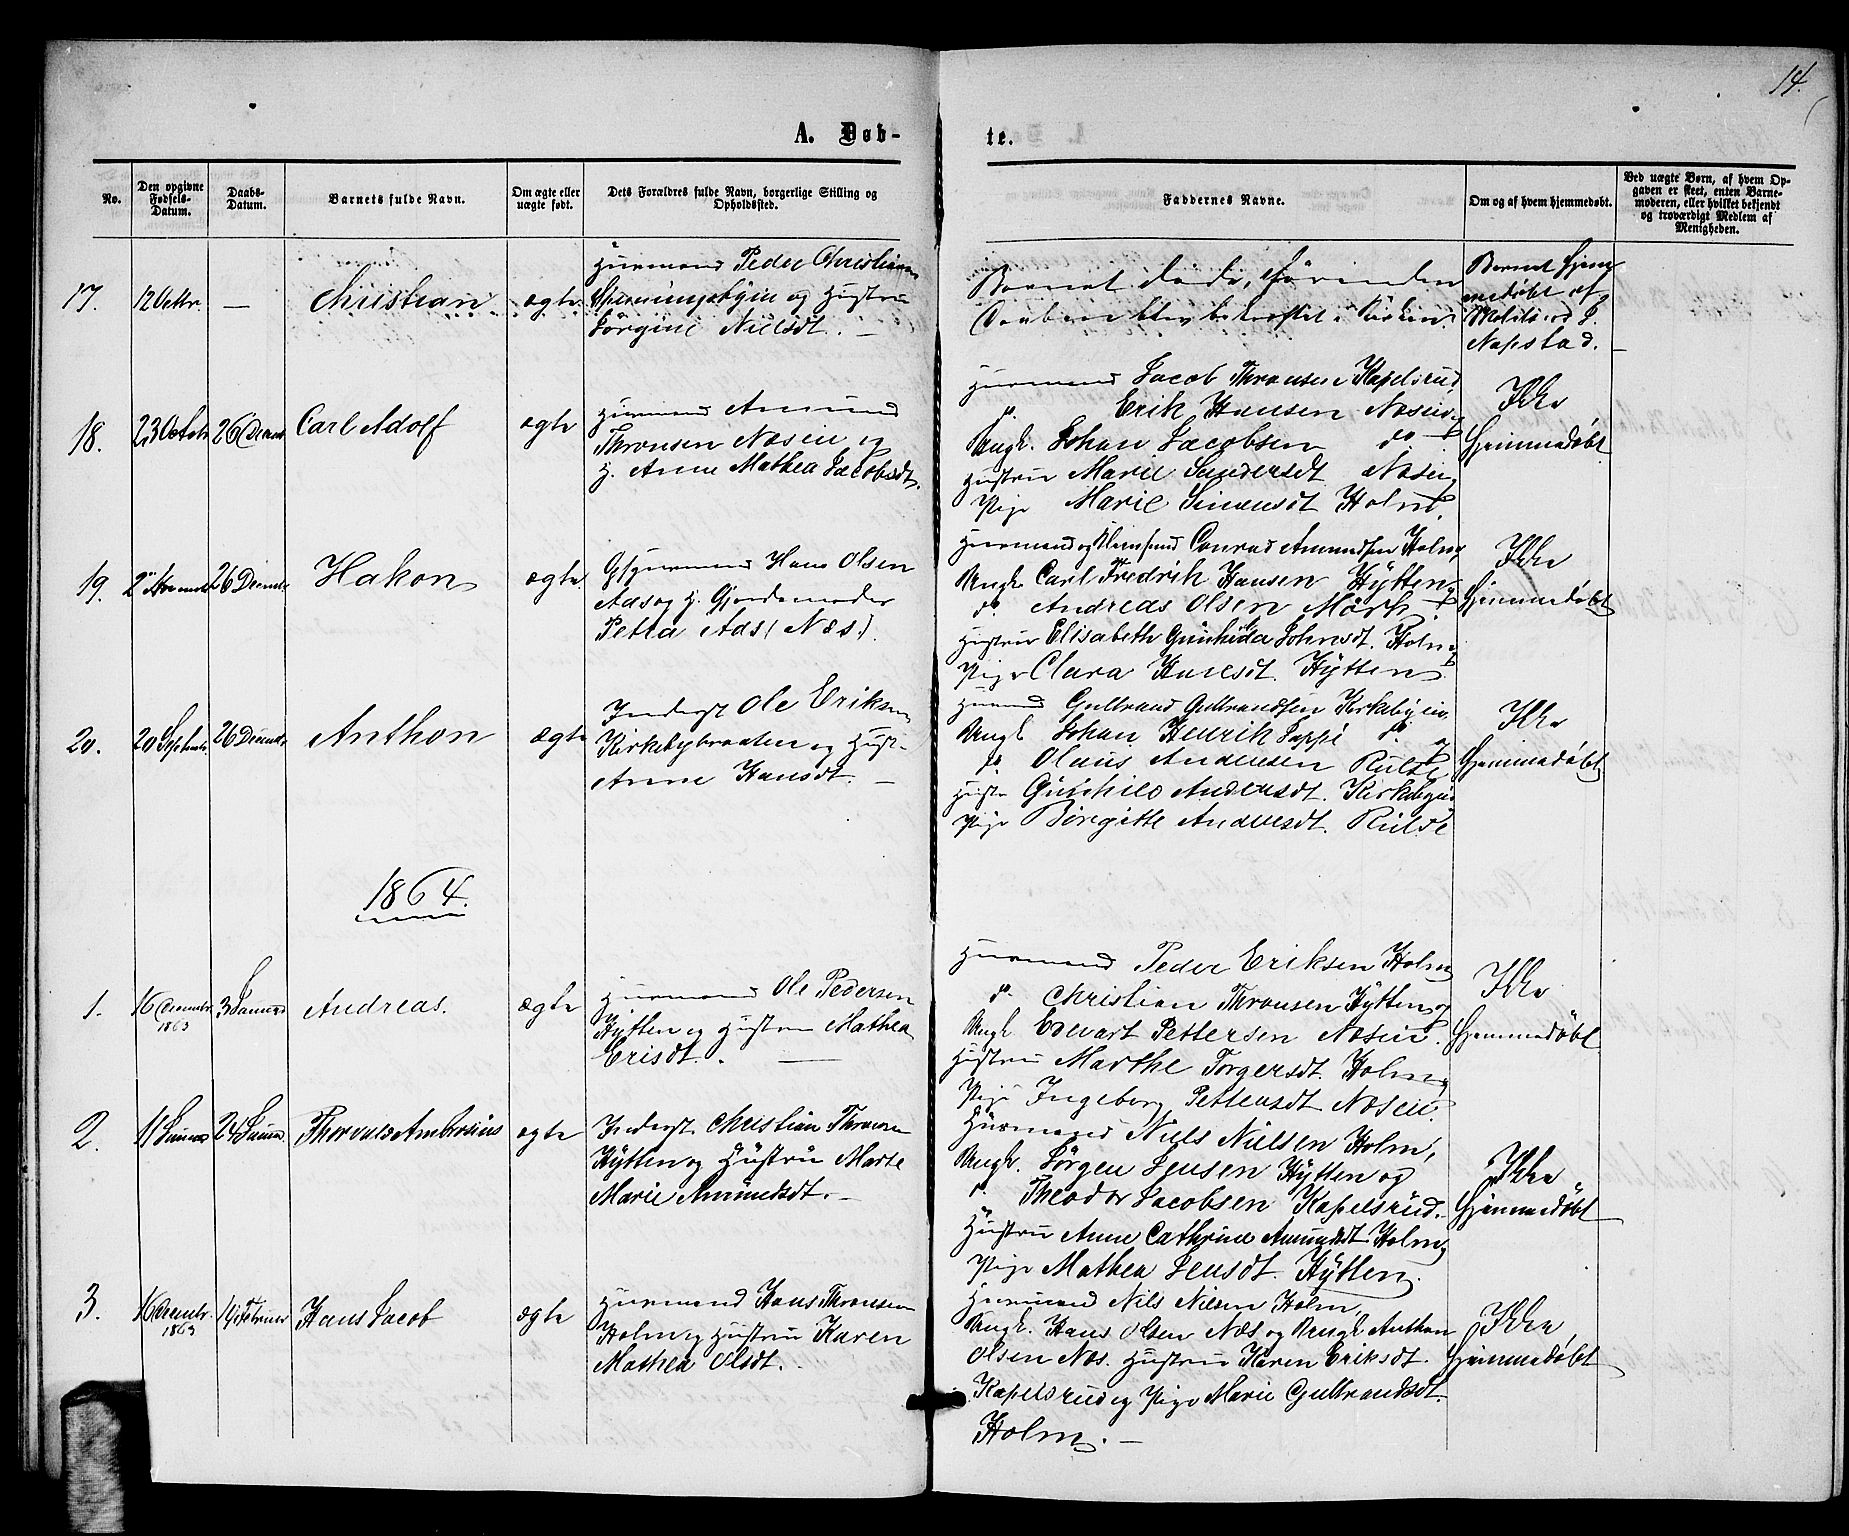 14.
A. Døb-
te.
No.
Den opgivne Fødsels-Datum.
Daabs-Datum.
Barnets fulde Navn.
Om ægte eller uægte født.
Dets Forældres fulde Navn, borgerlige Stilling og Opholdssted.
Faddernes Navne.
Om og af hvem hjemmedøbt.
Ved uægte Børn, af hvem Op-
gaven er skeet, enten Barne-
moderen, eller hvilket bekjendt
og troværdigt Medlem af
Menigheden.
17. 12 Octbr. — Christian ægte
Huusmand Peder Christiansen
og Hustru
Jørgine Nielsdt. —
Barnet døde, førinden
Daaben blev bekræftet i Kirken.
Barnet hjem-
medøbt af
Napstad.
18. 23 Octob. 26 Decemb. Carl Adolf ægte
Huusmand Amund
Thronsen Næseie og
H. Anne Mathea Jacobsdt.
Huusmand Jacob Thronsen Kapelsrud,
do. Erik Hansen Næseie,
Ungk. Johan Jacobsen do.
Hustru Marie Gundersdt Næseie
Pige Marie Simensdt Holm.
Ikke
Hjemmedøbt
19. 2 Novemb. 26 Decemb. Hakon ægte
Huusmand Hans Olsen
Aas og H. Gjordemoder
Petra Aas (Næs).
Huusmand og Conrad Amundsen Holm,
Ungk. Carl Fredrik Hansen Hytten,
do. Andreas Olsen Mörk,
Hustru Elisabeth Gunhilda Johnsdt. Holm,
Pige Clara Hansdt. Hytten
Ikke
Hjemmedøbt
20. 20 Septemb. 26 Decemb. Anthon ægte
Inderst Ole Eriksen
Kirkebybraaten og Hust-
Anne Hansdt. —
Huusmd Gulbrand Gulbrandsen Kirkebyeie,
Ungk Johan Henrik Jappé do. og
do. Olaus Andersen Rulse
Hustr. Gunhild Andersdt. Kirkebyeie
Pige Börgitte Andersdt. Rulse
Ikke
Hjemmedøbt
1864.
1. 16 Decembr. 1863 3 Januar Andreas. ægte
Huusmand Ole Pedersen
Hytten og Hustru Mathea
Erisdt. —
Huusmand Peder Eriksen Holm,
do. Christian Thronsen Hytten og
Ungk. Edevart Pettersen Næseie.
Hustru Marthe Torgersdt. Holm,
Pige Ingeborg Pettersdt Næseie.
Ikke
Hjemmedøbt.
2. 11 Januar 24 Januar. Thorvald Ambrosius ægte
Inderst. Christian Thronsen
Hytten og Hustru Marte
Marie Amundsdt. —
Huusmand Niels Nielsen Holm,
Ungk. Jørgen Jensen Hytten og
do. Theodor Jacobsen Kapelsrud.
Hustru Anne Cathrine Amundsdt. Holm,
Pige Mathea Jensdt. Hytten.
Ikke
Hjemmedøbt
3. 16 Decembr. 1863 14 Februar Hans Jacob ægte
Huusmand Hans Thronsen
Holm og Hustru Karen
Mathea Olsdt.
Huusmand Nils Nilsen Holm,
Ungk. Hans Olsen Næs og Ungk Anthon
Olsen Næs. Hustru Karen Eriksdt.
Kapelsrud og Pige Marie Gulbrandsdt.
Holm. —
Ikke
Hjemmedøbt